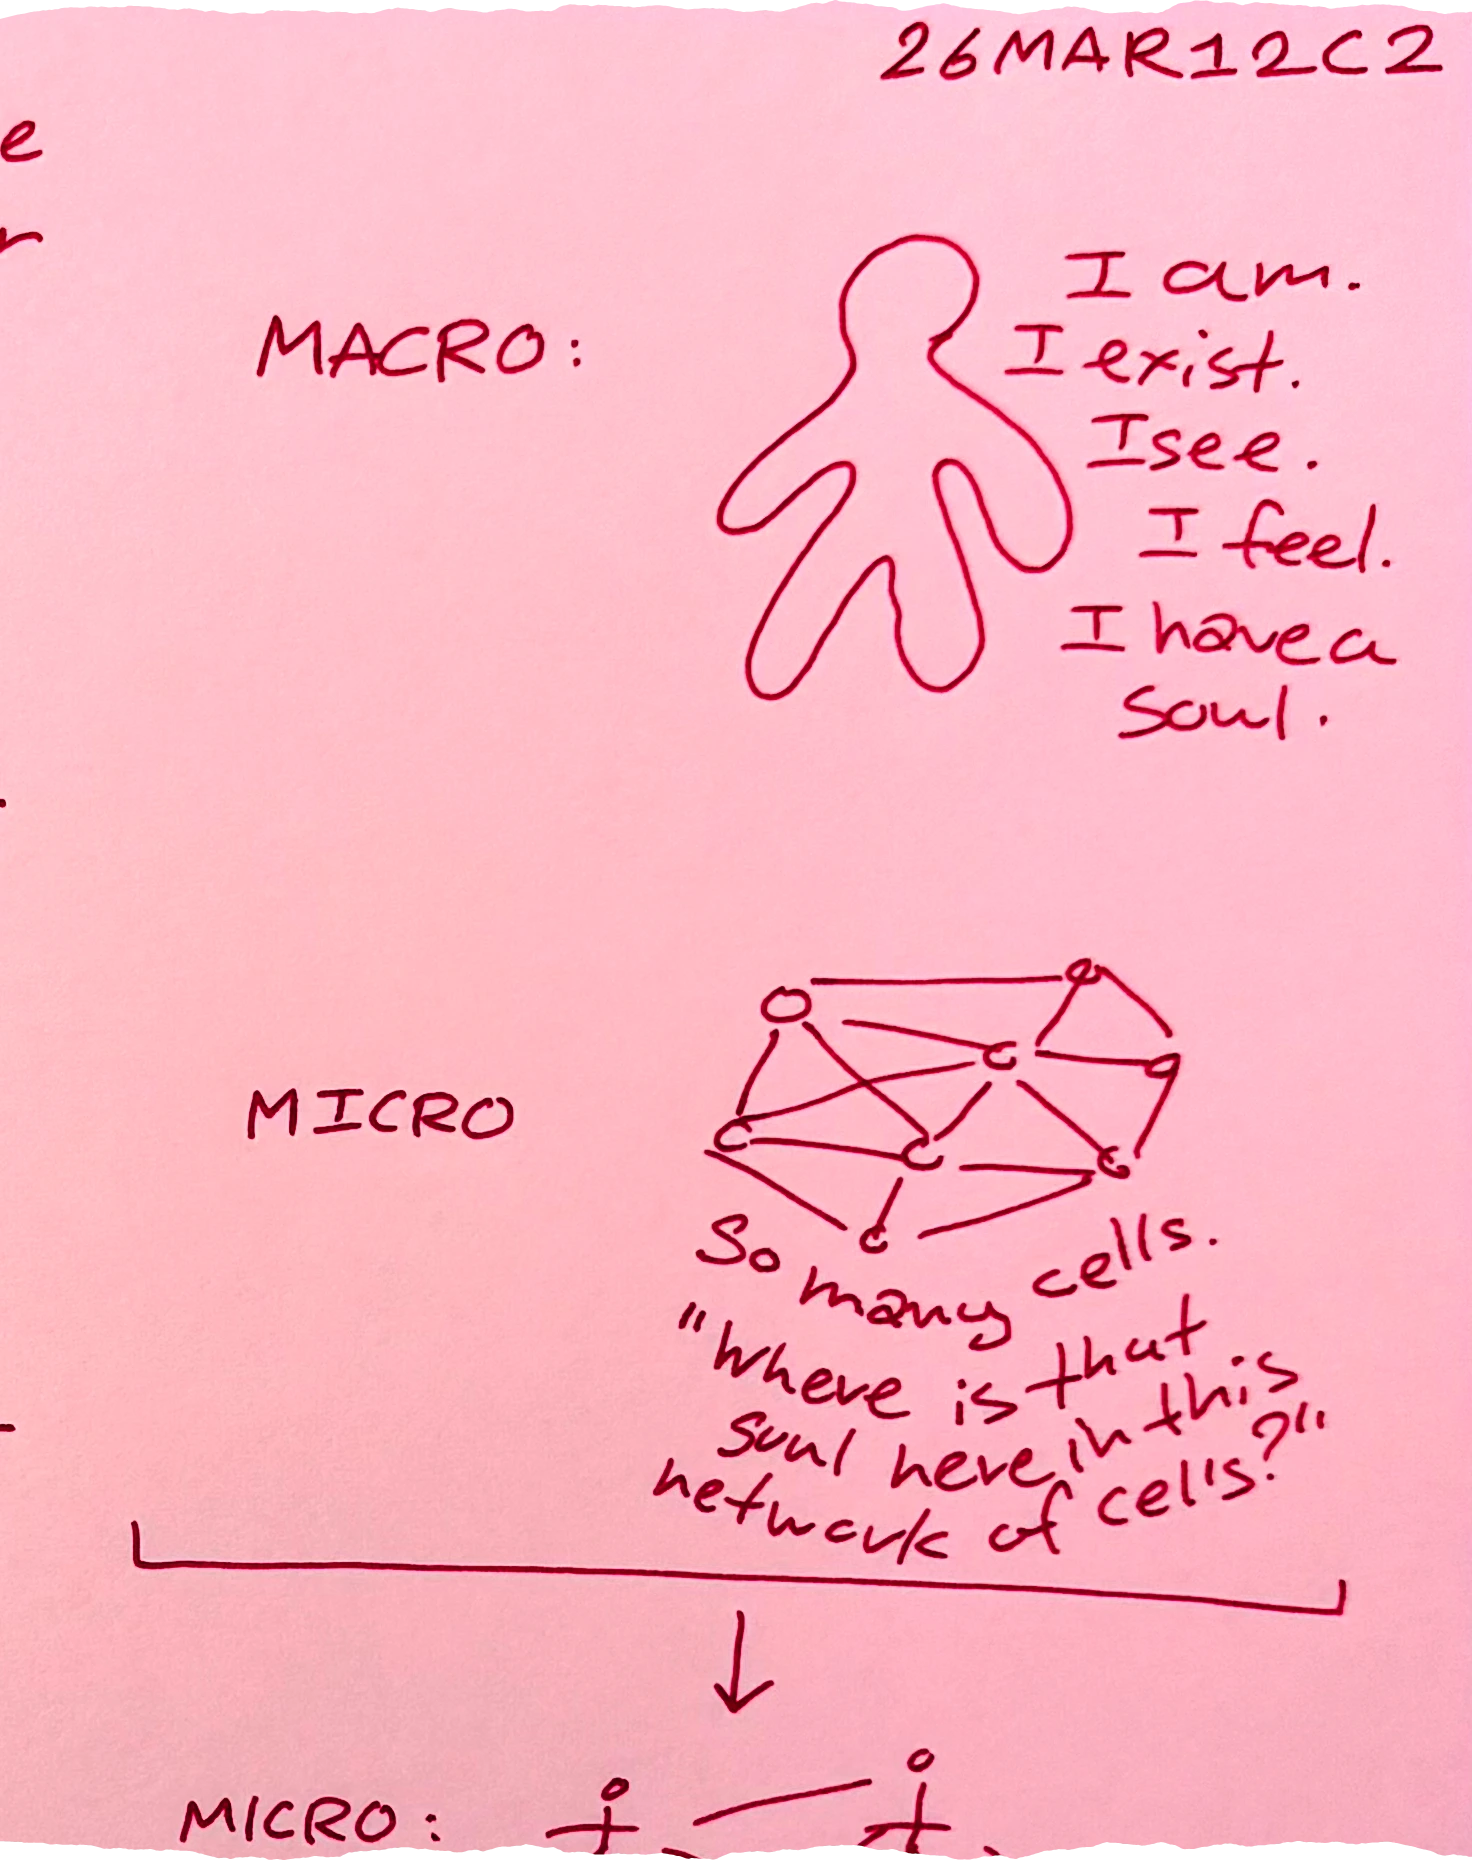 26MAR12C2
e
r
MACRO:
I am.
I exist.
I see.
I feel.
I have a
soul.
MICRO
So many cells.
"Where is that
soul here in this
network of cells?"
MICRO: